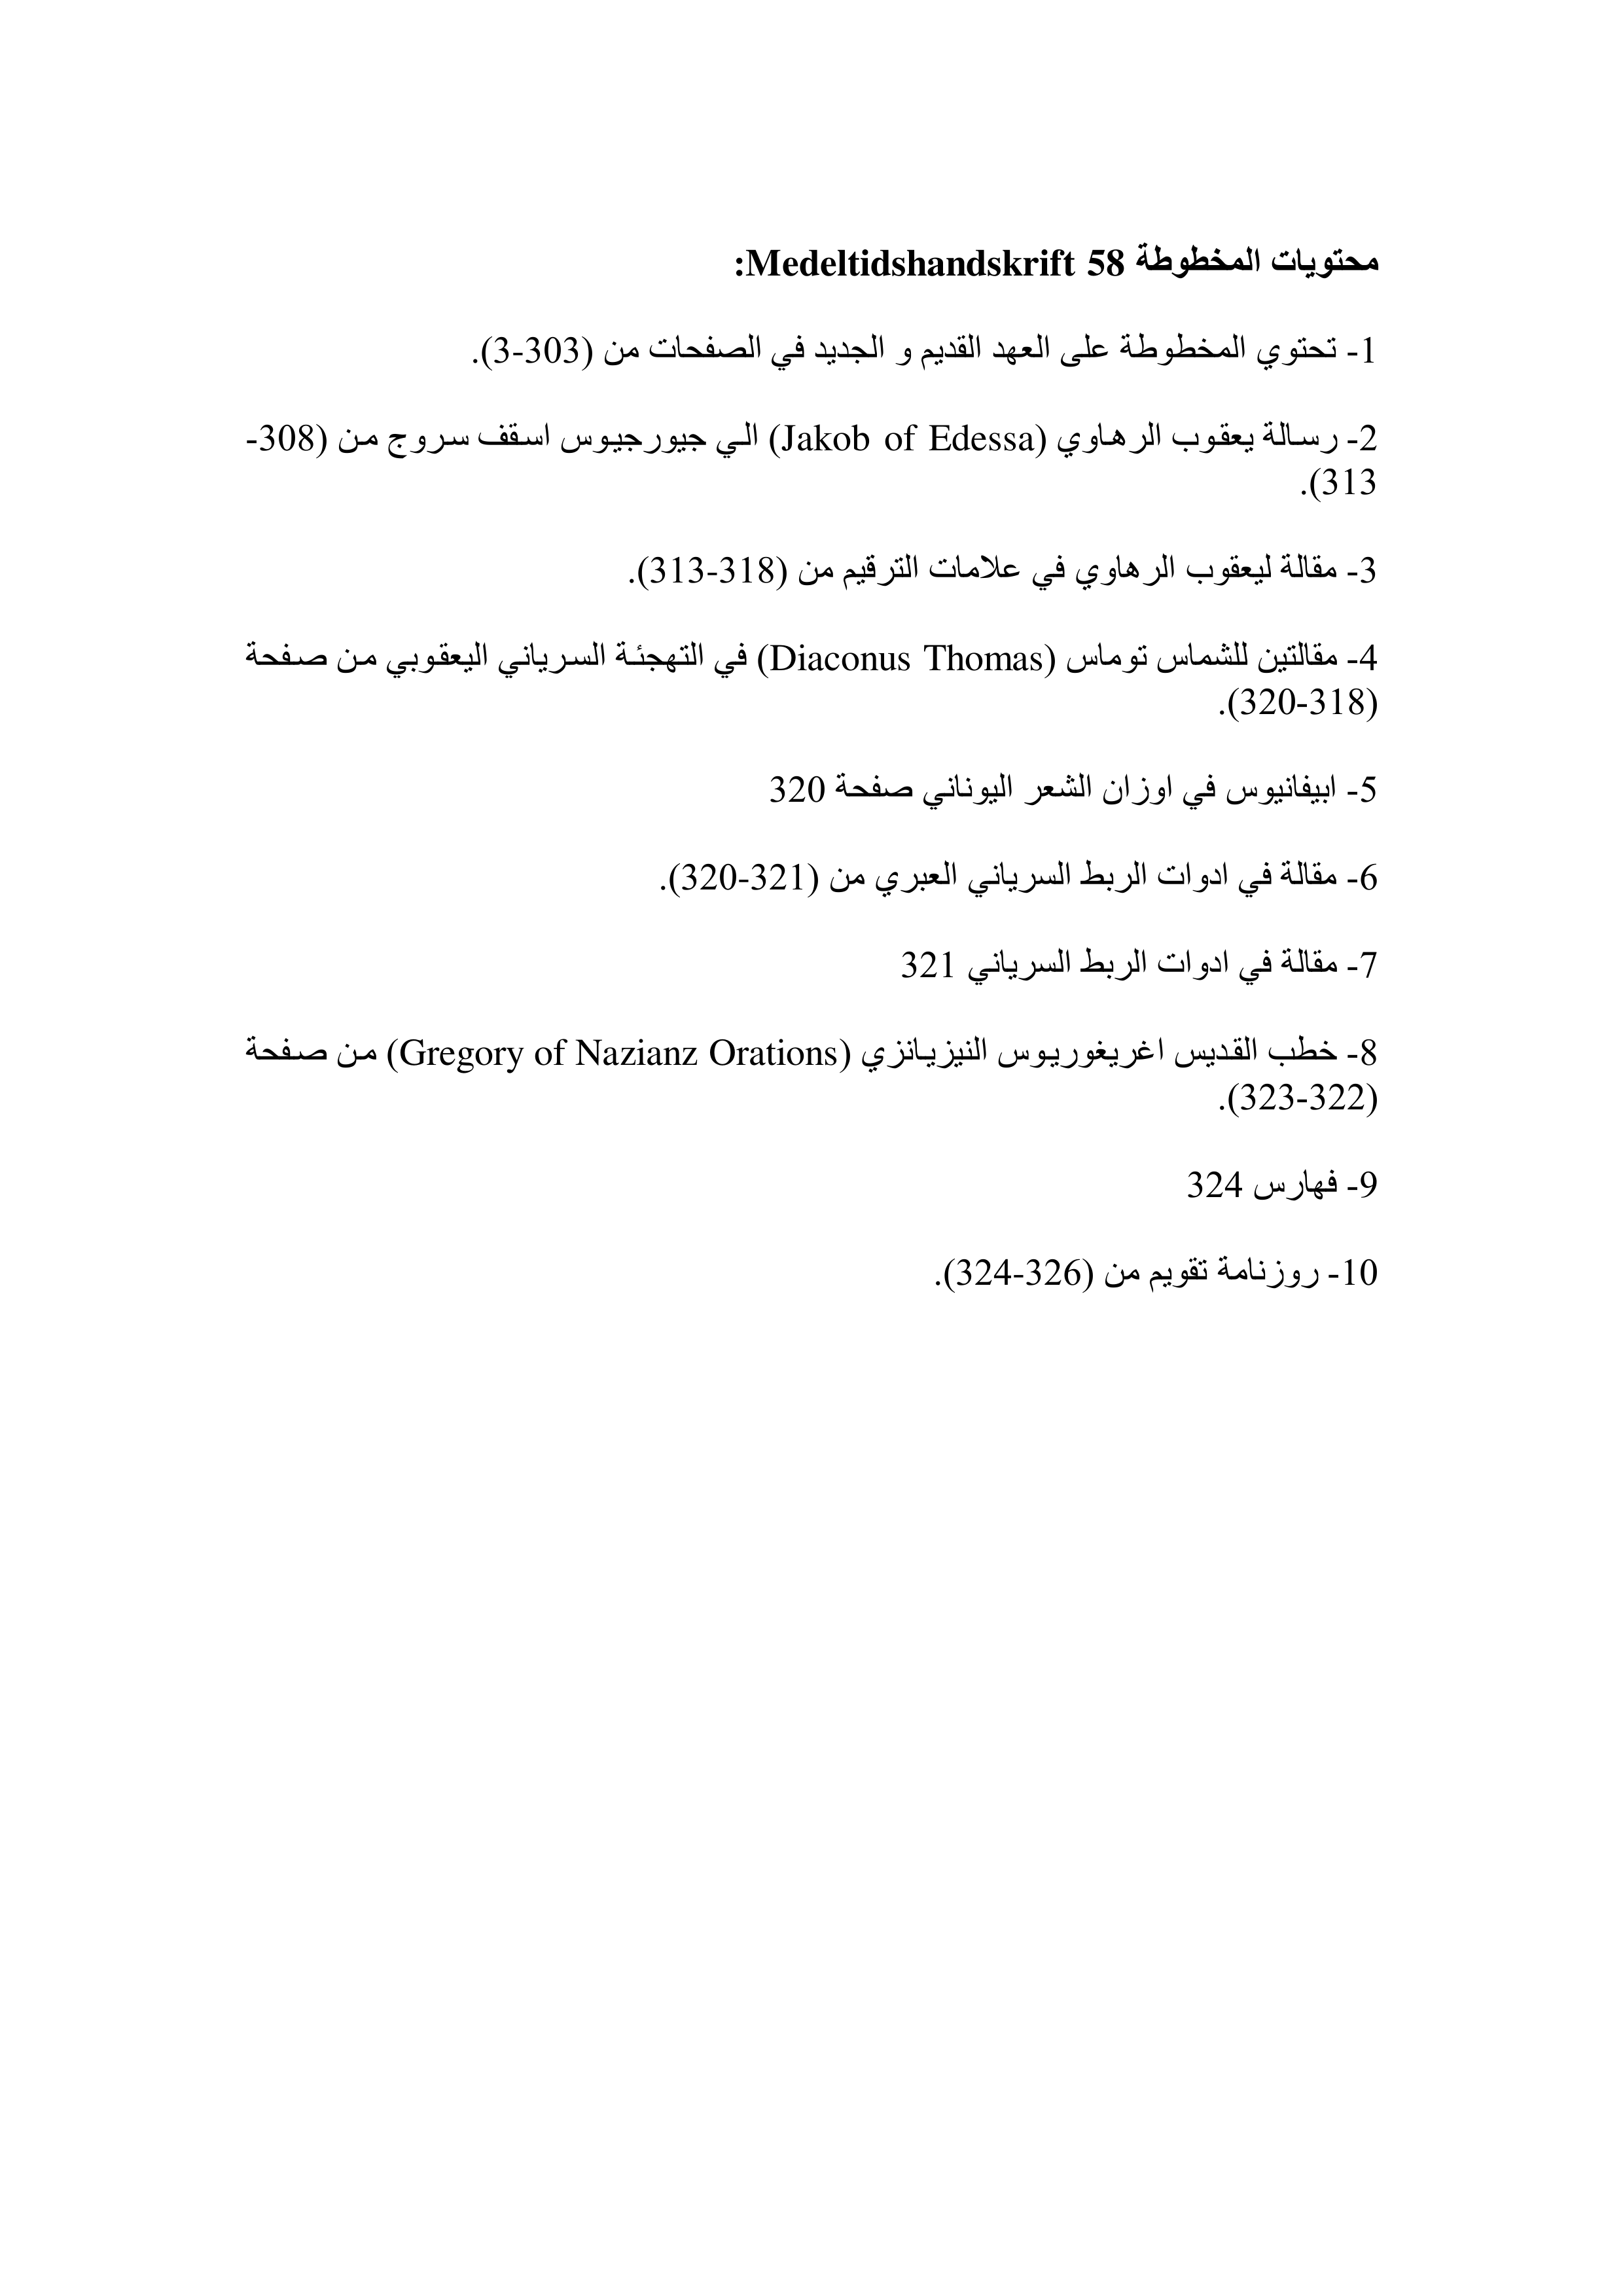 محتويات المخطوطة Medeltidshandskrift 58:
1- تحتوي المخطوطة على العهد القديم و الجديد في الصفحات من (3-303).
2- رسالة يعقوب الرهاوي (Jakob of Edessa) الي جيورجيوس اسقف سروج من (308-
313).
3- مقالة ليعقوب الرهاوي في علامات الترقيم من (313-318).
4- مقالتين للشماس توماس (Diaconus Thomas) في التهجئة السرياني اليعقوبي من صفحة
(318-320).
5- ابيفانيوس في اوزان الشعر اليوناني صفحة 320
6- مقالة في ادوات الربط السرياني العبري من (320-321).
7- مقالة في ادوات الربط السرياني 321
8- خطب القديس اغريغوريوس النيزيانزي (Gregory of Nazianz Orations) من صفحة
(322-323).
9- فهارس 324
10- روزنامة تقويم من (324-326).